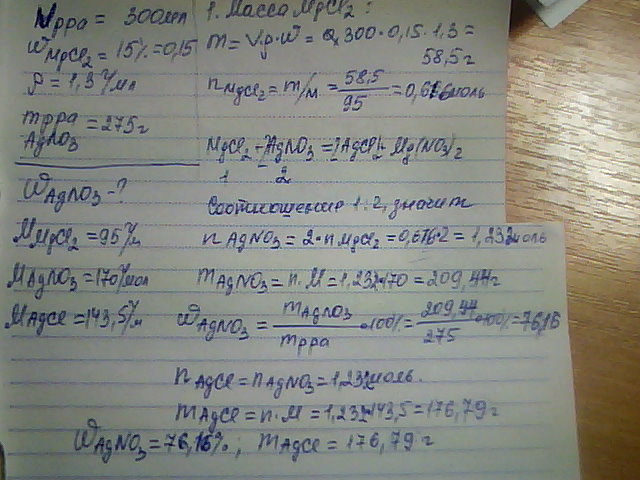 Mрра = 300мл
WMgCl2 = 15% = 0,15
ρ = 1,3 г/мл
mрра = 275г
AgNO3
WAgNO3 - ?
MMgCl2 = 95 г/м
MAgNO3 = 170 г/мол
MAgCl = 143,5 г/м
1. Масса MgCl2:
m = V·ρ·W = 300·0,15·1,3 =
58,5г
nMgCl2 = m/M = 58,5/95 = 0,616моль
MgCl2 + 2AgNO3 = 2AgCl + Mg(NO3)2
1 2
Соотношение 1:2, значит
nAgNO3 = 2·nMgCl2 = 0,616·2 = 1,232моль
mAgNO3 = n·M = 1,232·170 = 209,44г
WAgNO3 = mAgNO3/mрра ·100% = 209,44/275 ·100% = 76,16
nAgCl = nAgNO3 = 1,232моль.
mAgCl = n·M = 1,232·143,5 = 176,79г
WAgNO3 = 76,16%; mAgCl = 176,79г